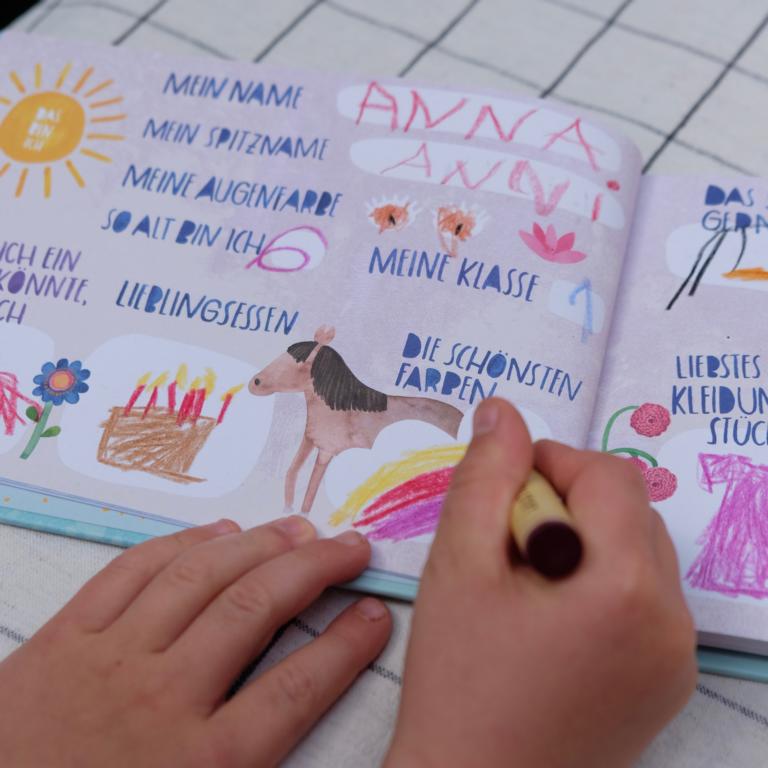 DAS
BIN
ICH
MEIN NAME
ANNA
MEIN SPITZNAME
ANNi
MEINE AUGENFARBE
SO ALT BIN ICH
6
MEINE KLASSE
1
ICH EIN
KÖNNTE,
CH
LIEBLINGSESSEN
DIE SCHÖNSTEN
FARBEN
DAS
GERN
LIEBSTES
KLEIDUN
STÜC